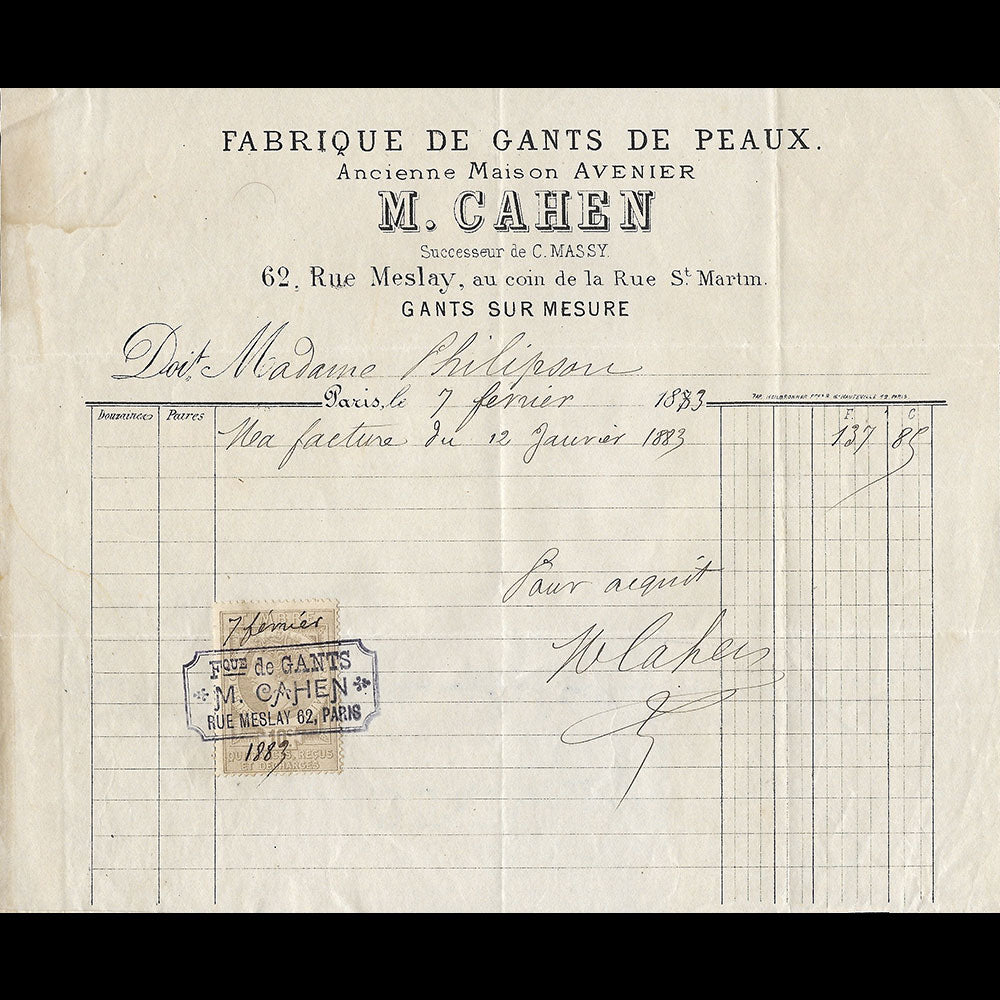 FABRIQUE DE GANTS DE PEAUX.
Ancienne Maison AVENIER
M. CAHEN
Successeur de C. MASSY.
62, Rue Meslay, au coin de la Rue St Martin.
GANTS SUR MESURE
Doit, Madame Philipson
Paris, le 7 février 1883
Douzaines Paires F. C
Ma facture du 12 Janvier 1883 137 85
Pour acquit
M Cahen
7 février
Fque de GANTS
M. CAHEN
RUE MESLAY 62, PARIS
10
1883
REÇUS
ET DÉCHARGES